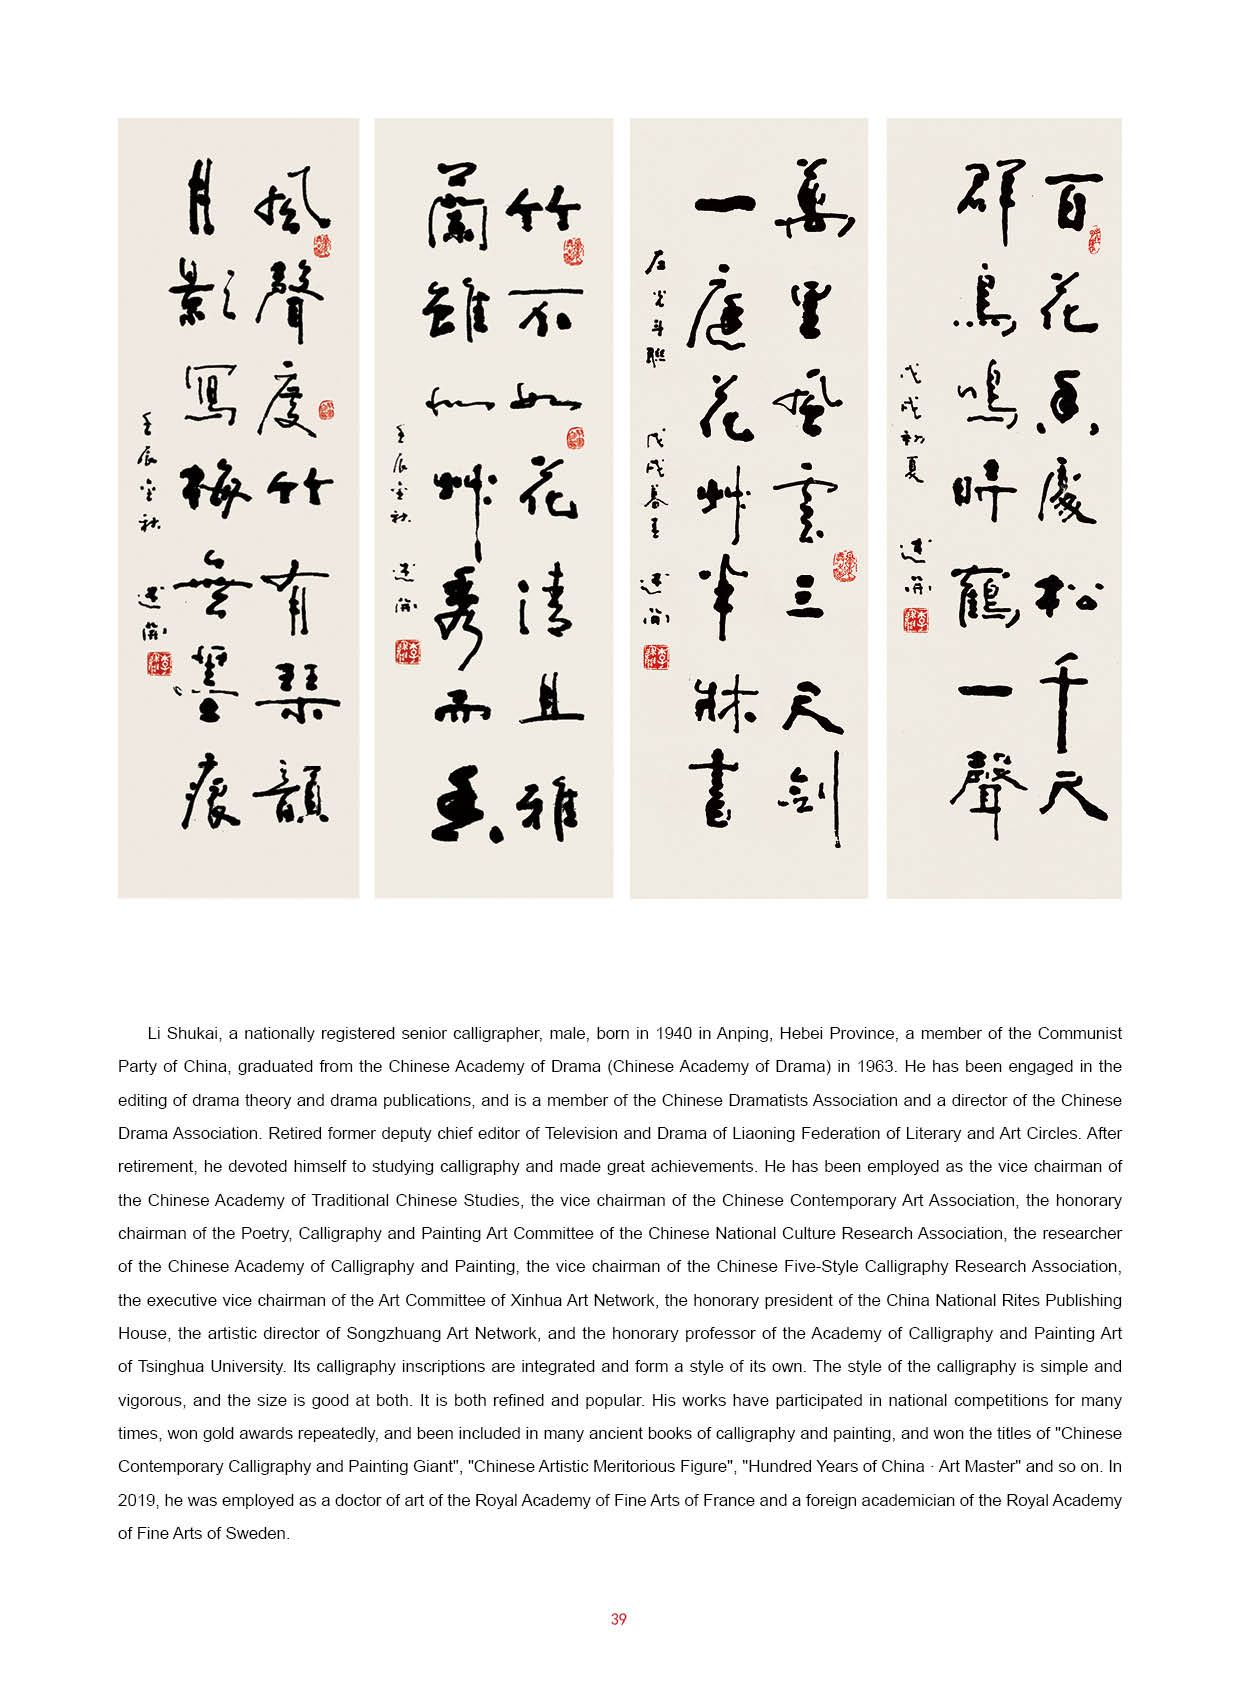 百花香處松千尺
群鳥鳴時鶴一聲
戊戌初夏 述開
萬里風雲三尺劍
一庭花艸半牀書
左光斗聯 戊戌暮春 述開
竹不如花清且雅
蘭雖似艸秀而香
壬辰金秋 述開
風聲度竹有琴韻
月影寫梅無墨痕
壬辰金秋 述開
Li Shukai, a nationally registered senior calligrapher, male, born in 1940 in Anping, Hebei Province, a member of the Communist
Party of China, graduated from the Chinese Academy of Drama (Chinese Academy of Drama) in 1963. He has been engaged in the
editing of drama theory and drama publications, and is a member of the Chinese Dramatists Association and a director of the Chinese
Drama Association. Retired former deputy chief editor of Television and Drama of Liaoning Federation of Literary and Art Circles. After
retirement, he devoted himself to studying calligraphy and made great achievements. He has been employed as the vice chairman of
the Chinese Academy of Traditional Chinese Studies, the vice chairman of the Chinese Contemporary Art Association, the honorary
chairman of the Poetry, Calligraphy and Painting Art Committee of the Chinese National Culture Research Association, the researcher
of the Chinese Academy of Calligraphy and Painting, the vice chairman of the Chinese Five-Style Calligraphy Research Association,
the executive vice chairman of the Art Committee of Xinhua Art Network, the honorary president of the China National Rites Publishing
House, the artistic director of Songzhuang Art Network, and the honorary professor of the Academy of Calligraphy and Painting Art
of Tsinghua University. Its calligraphy inscriptions are integrated and form a style of its own. The style of the calligraphy is simple and
vigorous, and the size is good at both. It is both refined and popular. His works have participated in national competitions for many
times, won gold awards repeatedly, and been included in many ancient books of calligraphy and painting, and won the titles of "Chinese
Contemporary Calligraphy and Painting Giant", "Chinese Artistic Meritorious Figure", "Hundred Years of China · Art Master" and so on. In
2019, he was employed as a doctor of art of the Royal Academy of Fine Arts of France and a foreign academician of the Royal Academy
of Fine Arts of Sweden.
39